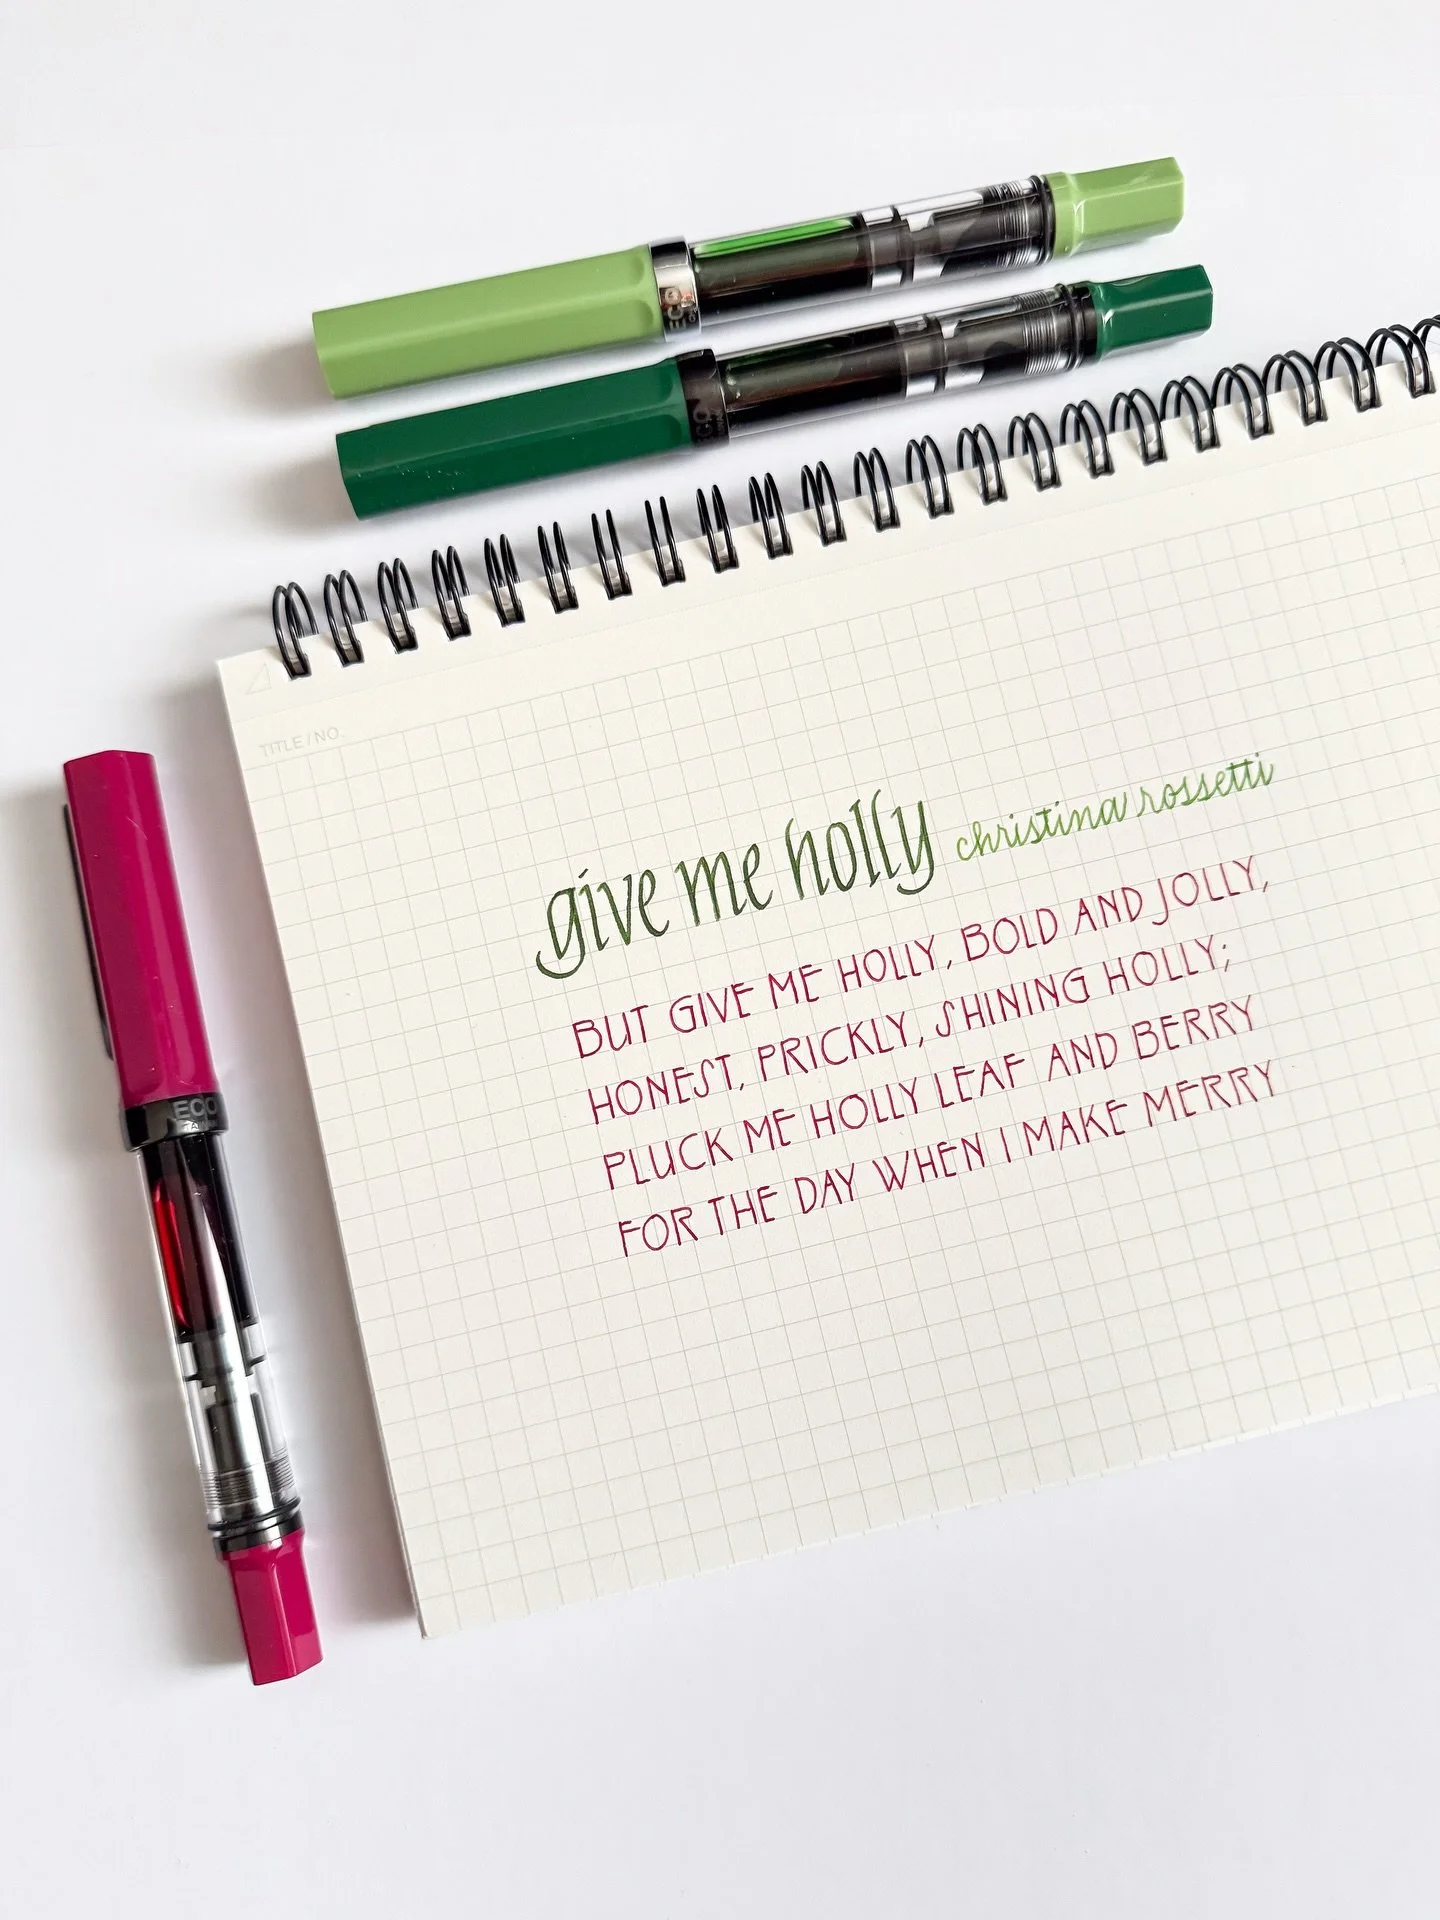 ECO
ECO
TITLE / NO.
give me holly christina rossetti
BUT GIVE ME HOLLY, BOLD AND JOLLY,
HONEST, PRICKLY, SHINING HOLLY;
PLUCK ME HOLLY LEAF AND BERRY
FOR THE DAY WHEN I MAKE MERRY
ECO